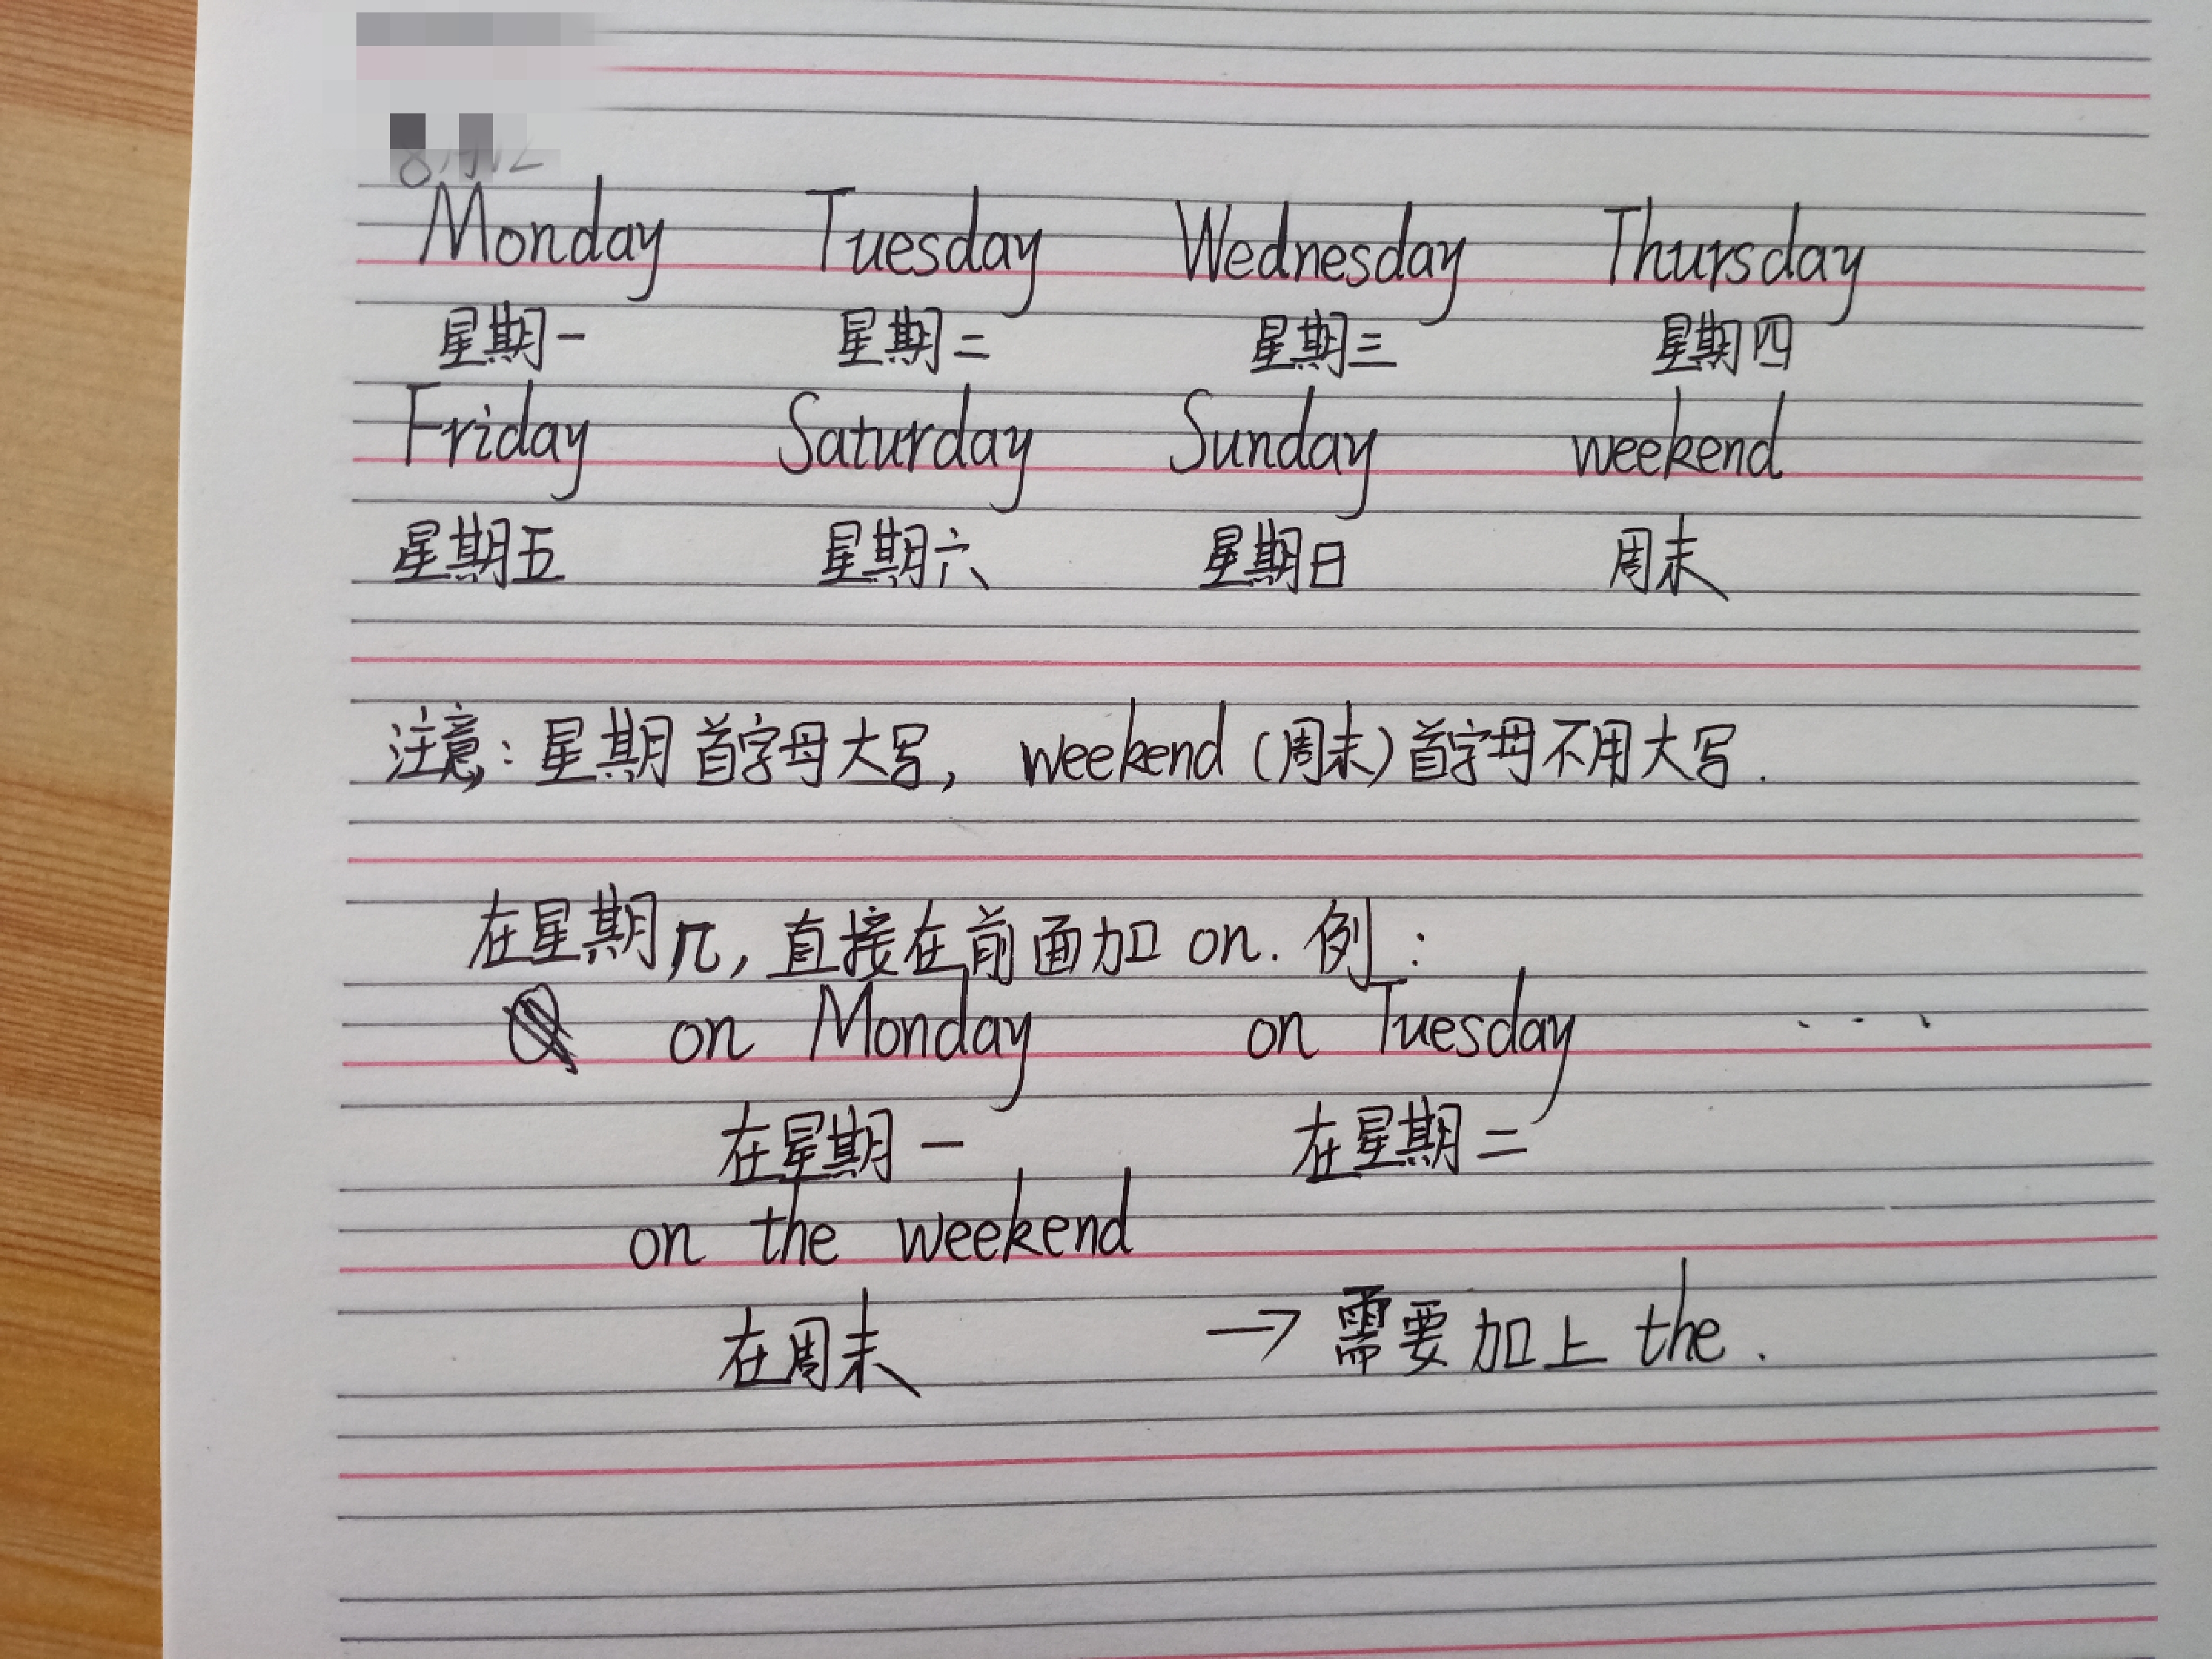 Monday Tuesday Wednesday Thursday
星期一 星期二 星期三 星期四
Friday Saturday Sunday weekend
星期五 星期六 星期日 周末
注意：星期首字母大写， weekend (周末)首字母不用大写.
在星期几，直接在前面加 on. 例：
on Monday on Tuesday ...
在星期一 在星期二
on the weekend
在周末 → 需要加上 the.